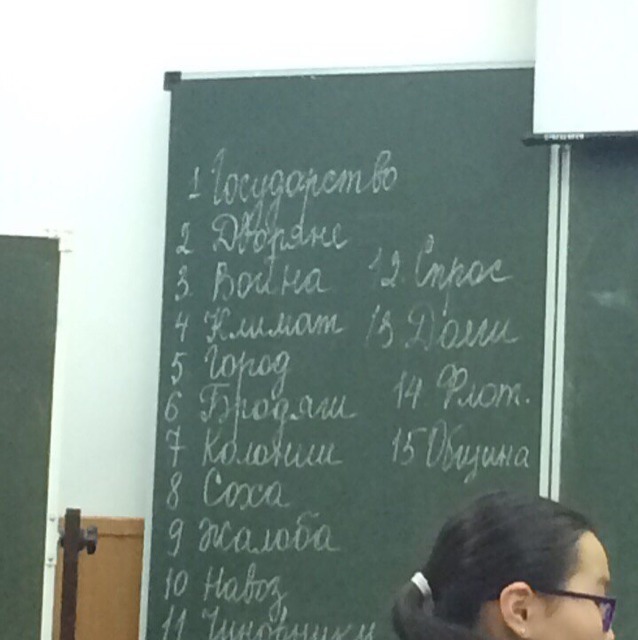 1 Государство
2 Дворяне
3. Война
4 Климат
5 Город
6 Бродяги
7 Колонии
8 Соха
9 Жалоба
10 Навоз
11 Чиновники
12. Спрос
13 Долги
14 Флот.
15 Община